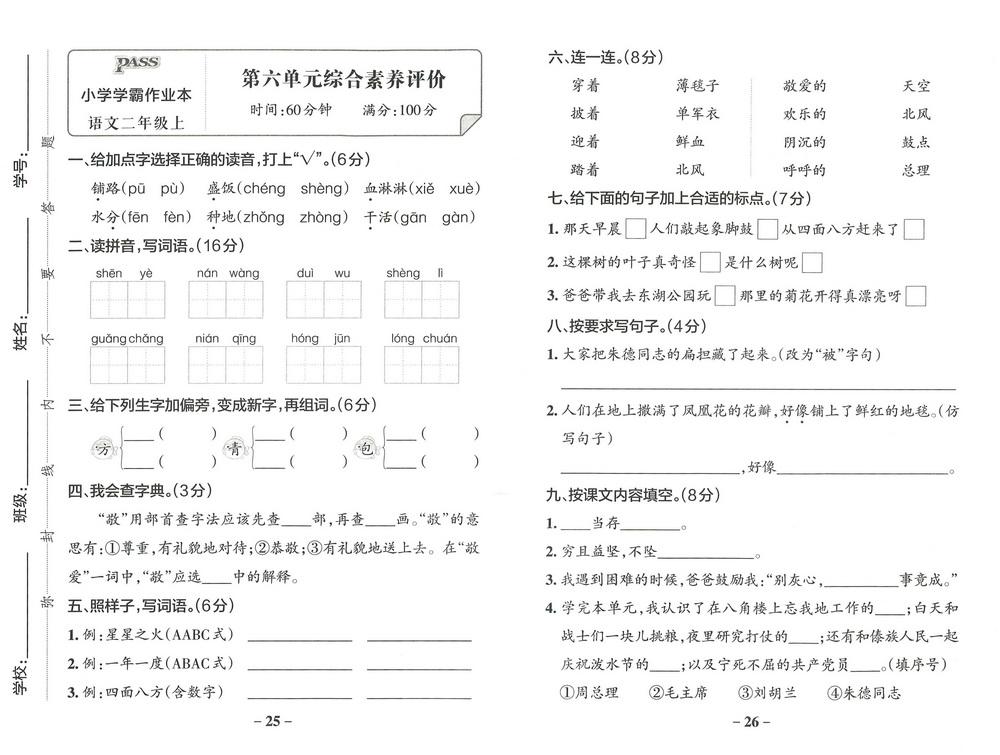 PASS
小学学霸作业本
语文二年级上
第六单元综合素养评价
时间:60分钟 满分:100分
学号:
姓名:
班级:
学校:
弥 封 线 内 不 要 答 题
一、给加点字选择正确的读音,打上“√”。(6分)
铺路(pū pù) 盛饭(chéng shèng) 血淋淋(xiě xuè)
水分(fēn fèn) 种地(zhǒng zhòng) 干活(gān gàn)
二、读拼音,写词语。(16分)
shēn yè nán wàng duì wu shèng lì
guǎng chǎng nián qīng hóng jūn lóng chuán
三、给下列生字加偏旁,变成新字,再组词。(6分)
方 ____( ) 青 ____( ) 包 ____( )
____( ) ____( ) ____( )
四、我会查字典。(3分)
“敬”用部首查字法应该先查____部,再查____画。“敬”的意
思有:①尊重,有礼貌地对待;②恭敬;③有礼貌地送上去。在“敬
爱”一词中,“敬”应选____中的解释。
五、照样子,写词语。(6分)
1. 例:星星之火(AABC式) ________ ________
2. 例:一年一度(ABAC式) ________ ________
3. 例:四面八方(含数字) ________ ________
– 25 –
六、连一连。(8分)
穿着 薄毯子 敬爱的 天空
披着 单军衣 欢乐的 北风
迎着 鲜血 阴沉的 鼓点
踏着 北风 呼呼的 总理
七、给下面的句子加上合适的标点。(7分)
1. 那天早晨□人们敲起象脚鼓□从四面八方赶来了□
2. 这棵树的叶子真奇怪□是什么树呢□
3. 爸爸带我去东湖公园玩□那里的菊花开得真漂亮呀□
八、按要求写句子。(4分)
1. 大家把朱德同志的扁担藏了起来。(改为“被”字句)
2. 人们在地上撒满了凤凰花的花瓣,好像铺上了鲜红的地毯。(仿
写句子)
________________,好像________________。
九、按课文内容填空。(8分)
1. ____当存________。
2. 穷且益坚,不坠__________。
3. 我遇到困难的时候,爸爸鼓励我:“别灰心,________事竟成。”
4. 学完本单元,我认识了在八角楼上忘我地工作的____;白天和
战士们一块儿挑粮,夜里研究打仗的____;还有和傣族人民一起
庆祝泼水节的____;以及宁死不屈的共产党员____。(填序号)
①周总理 ②毛主席 ③刘胡兰 ④朱德同志
– 26 –